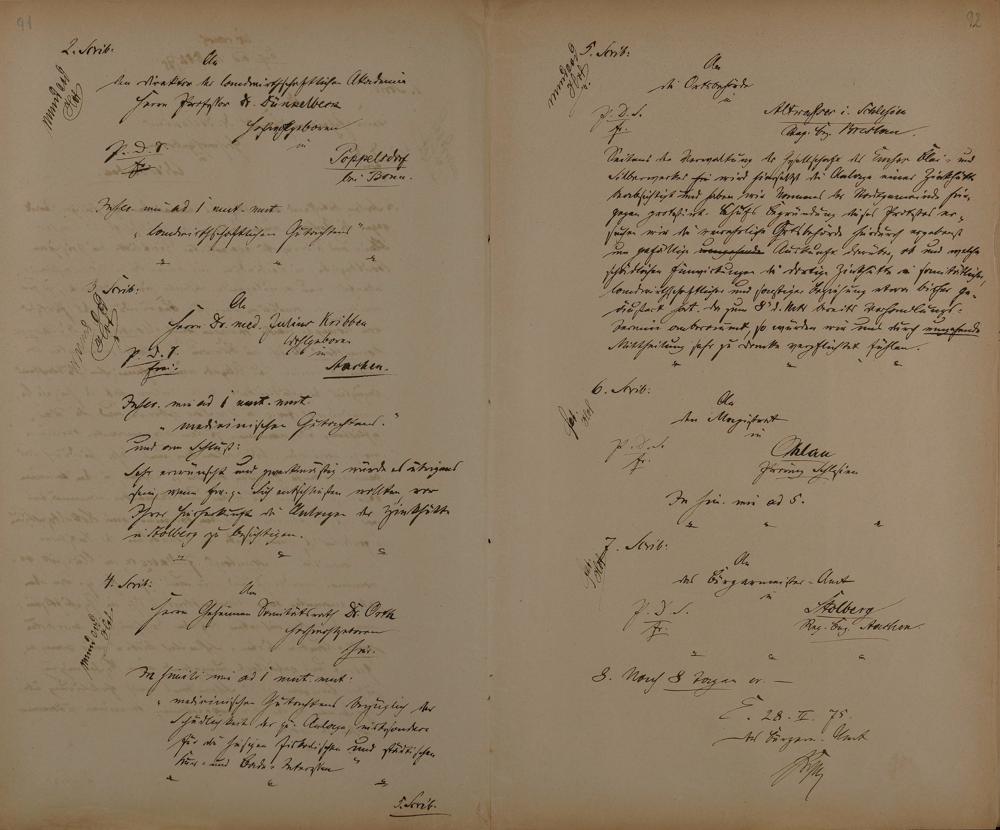 91
2. Scrib:
An
den Direktor der landwirthschaftlichen Akademie
Herrn Professor Dr. Dünkelberg
Hochwohlgeboren
in
P. D. S.
fr.
Poppelsdorf
bei Bonn.
Inser. wie ad 1 mut. mut.
"landwirthschaftlichen Gutachtens"
3. Scrib:
An
Herrn Dr. med. Julius Kribben
Wohlgeboren
in
P. D. S.
frei.
Aachen.
Inser. wie ad 1 mut. mut.
"medicinischen Gutachtens."
und am Schluß:
Sehr erwünscht und zweckmäßig würde es übrigens
sein, wenn Ew. p. Sich entschließen wollten vor
Ihrer Hierherkunft die Anlagen der Zinkhütte
in Stolberg zu besichtigen.
4. Scrib:
An
Herrn Geheimen Sanitätsrath Dr. Orth
Hochwohlgeboren
hier.
In simili wie ad 1 mut. mut:
"medicinischen Gutachtens bezüglich der
Schädlichkeit der pp. Anlage, insbesondere
für die hiesigen fiskalischen und städtischen
Kur- und Bade-Interessen"
5. Scrib.
92
5. Scrib:
An
die Ortsbehörde
in
P. D. S.
fr.
Altwasser i. Schlesien
Reg. Bez. Breslau.
Seitens der Verwaltung der Gesellschaft des Emser Blei- und
Silberwerks hier wird hierselbst die Anlage einer Zinkhütte
beabsichtigt und haben wir Namens der Stadtgemeinde hie-
gegen protestirt. Behufs Begründung dieses Protestes er-
suchen wir die verehrliche Ortsbehörde hierdurch ergebenst
um gefällige Auskunft darüber, ob und welche
schädlichen Einwirkungen die dortige Zinkhütte in sanitätlicher,
landwirthschaftlicher und sonstiger Beziehung etwa bisher ge-
äußert hat. Da zum 8. d. Mts. bereits Verhandlungs-
termin anberaumt, so würden wir uns durch umgehende
Mittheilung sehr zu Danke verpflichtet fühlen.
6. Scrib:
An
den Magistrat
in
P. D. S.
fr.
Ohlau
Provinz Schlesien
In sim. wie ad 5.
7. Scrib:
An
das Bürgermeister-Amt
in
P. D. S.
fr.
Stolberg
Reg. Bez. Aachen.
8. Nach 8 Tagen
E. 28. II. 75.
Das Bürgerm. Amt